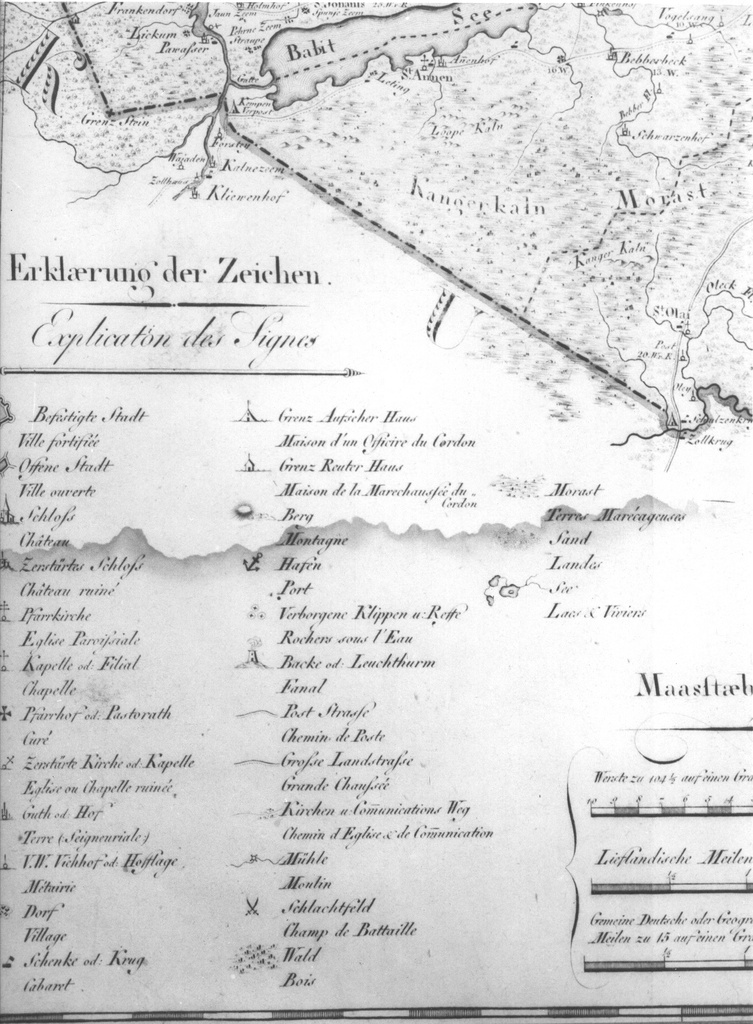 Frankendorf
Lickum
Pawasser
Jaun Zeem
Holmhof
Pehrne Zeem
Straupe
Babit See
Gutte
Kempen
Vorpost
St. Annen
Auenhof
Leting
16.W.
Vogelsang
Bebberbeck
15.W.
Bebber
Schwarzenhof
Grenz Stein
Forstey
Kalnezeem
Zollhaus
Kliewenhof
Loppe Kaln
Kangerkaln
Morast
Kanger Kaln
Oleck
St. Olai
Post
20.W.v.R.
Oley
Zollkrug
Erklærung der Zeichen.
Explicaton des Signes
Befestigte Stadt
Ville fortifiée
Offene Stadt
Ville ouverte
Schloſs
Château
Zerstärtes Schloſs
Château ruiné
Pfarrkirche
Eglise Paroiſsiale
Kapelle od: Filial
Chapelle
Pfarrhof od: Pastorath
Curé
Zerstärte Kirche od: Kapelle
Eglise ou Chapelle ruinée
Guth od: Hof
Terre (Seigneuriale)
V.W. Viehhof od: Hofflage
Métairie
Dorf
Village
Schenke od: Krug
Cabaret
Grenz Aufseher Haus
Maison d'un Officire du Cordon
Grenz Reuter Haus
Maison de la Marechauſsée du
Cordon
Berg
Montagne
Hafen
Port
Verborgene Klippen u: Reffe
Rochers sous l'Eau
Backe od: Leuchthurm
Fanal
Post Strasſe
Chemin de Poste
Grosſe Landstrasſe
Grande Chausſée
Kirchen u: Com̄unications Weg
Chemin d'Eglise & de Com̄unication
Mühle
Moulin
Schlachtfeld
Champ de Battaille
Wald
Bois
Morast
Terres Marécageuses
Sand
Landes
See
Lacs & Viviers
Maasſtæb
Werste zu 104 ½ auf einen Gra
10 9 8 7 6 5 4
Lieflandische Meilen
½ 1
Gemeine Deutsche oder Geogra
Meilen zu 15 auf einen Gra
½ 1